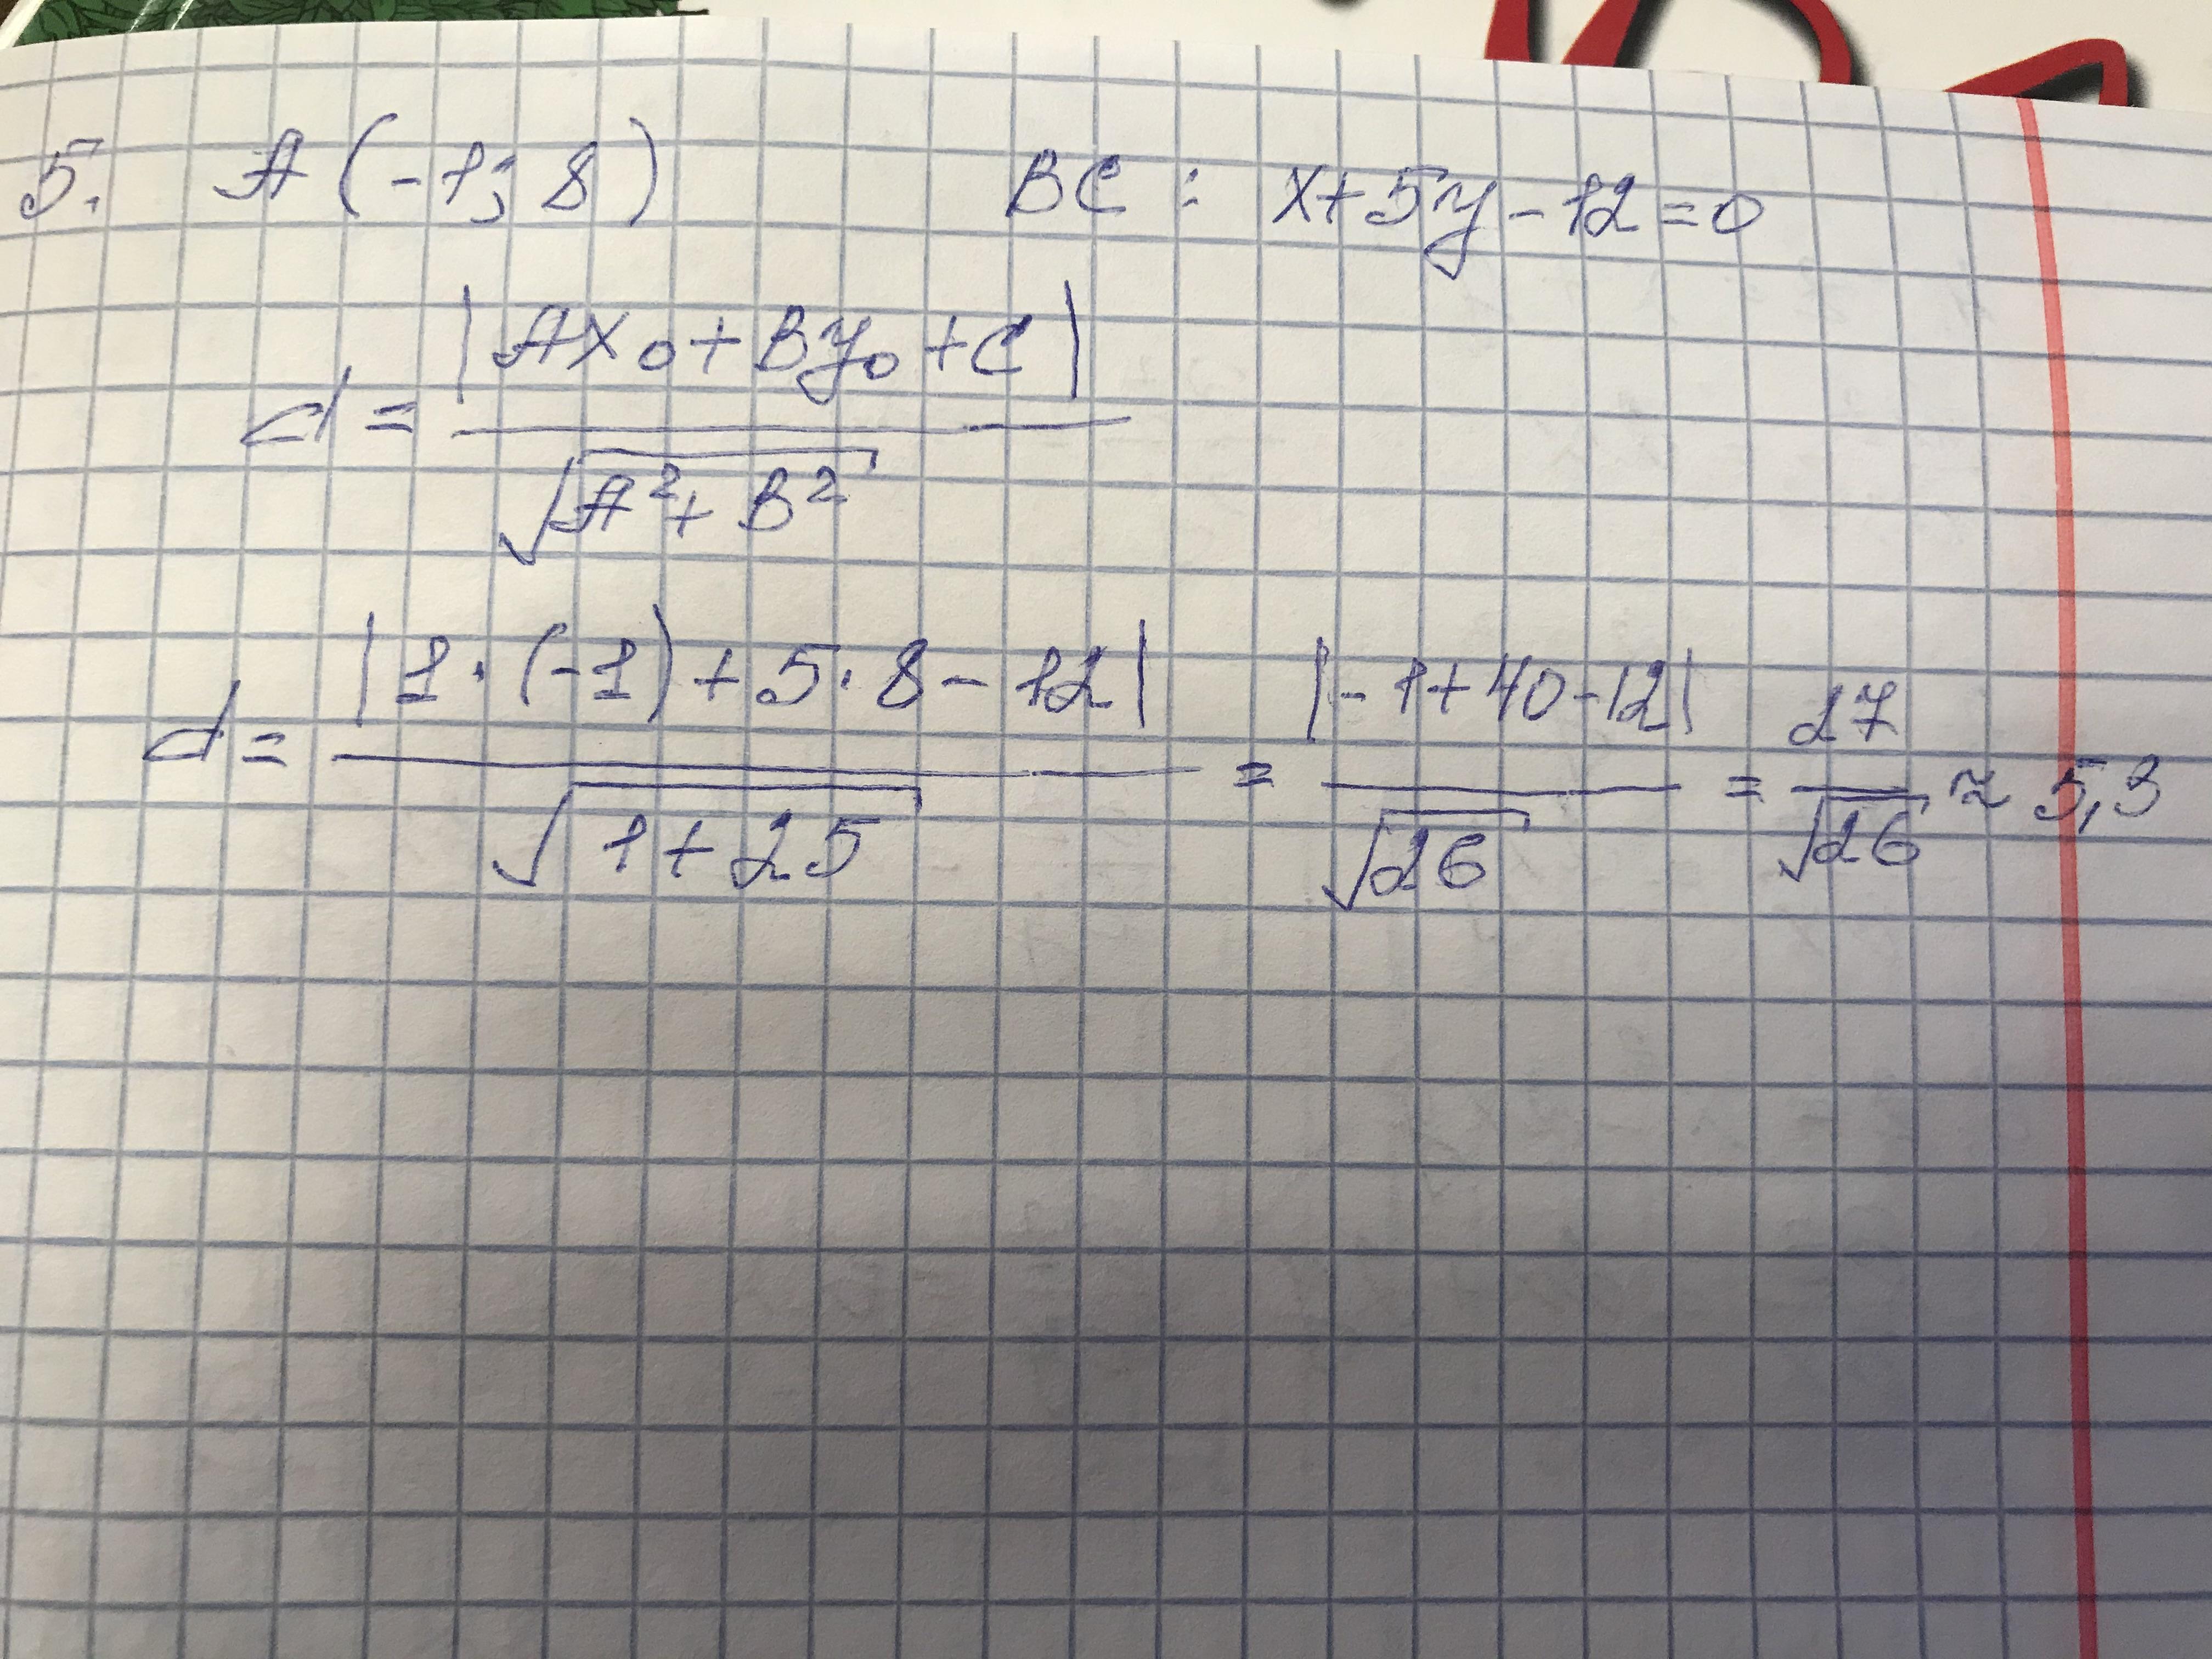 5. A (-1; 8) BC : x+5y-12=0
d = |Ax₀+By₀+C| / √(A²+B²)
d = |1·(-1)+5·8-12| / √(1+25) = |-1+40-12| / √26 = 27/√26 ≈ 5,3